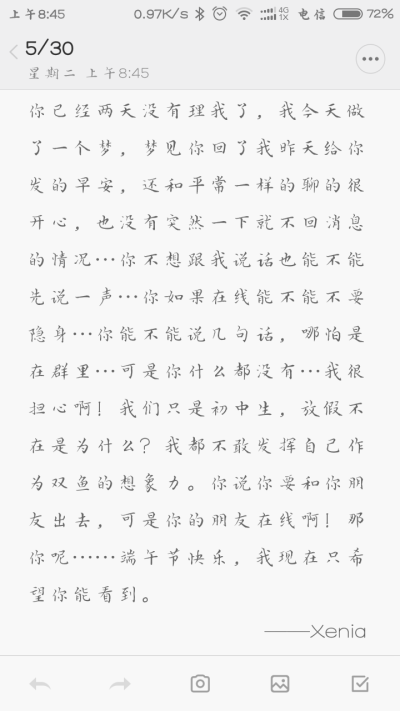 上午8:45
0.97K/s
4G
1X
电信
72%
5/30
星期二 上午8:45
你已经两天没有理我了，我今天做
了一个梦，梦见你回了我昨天给你
发的早安，还和平常一样的聊的很
开心，也没有突然一下就不回消息
的情况…你不想跟我说话也能不能
先说一声…你如果在线能不能不要
隐身…你能不能说几句话，哪怕是
在群里…可是你什么都没有…我很
担心啊！我们只是初中生，放假不
在是为什么？我都不敢发挥自己作
为双鱼的想象力。你说你要和你朋
友出去，可是你的朋友在线啊！那
你呢……端午节快乐，我现在只希
望你能看到。
———Xenia